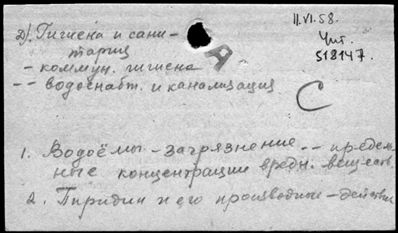 Д). Гигиена и сани-
тария
- коммун. гигиена
-- водоснабт. и канализация
II.VI.58.
Чит.
518147.
А
С
1. Водоёмы - загрязнение -- предель-
ные концентрации вредн. веществ.
2. Пиридин и его производные - действие